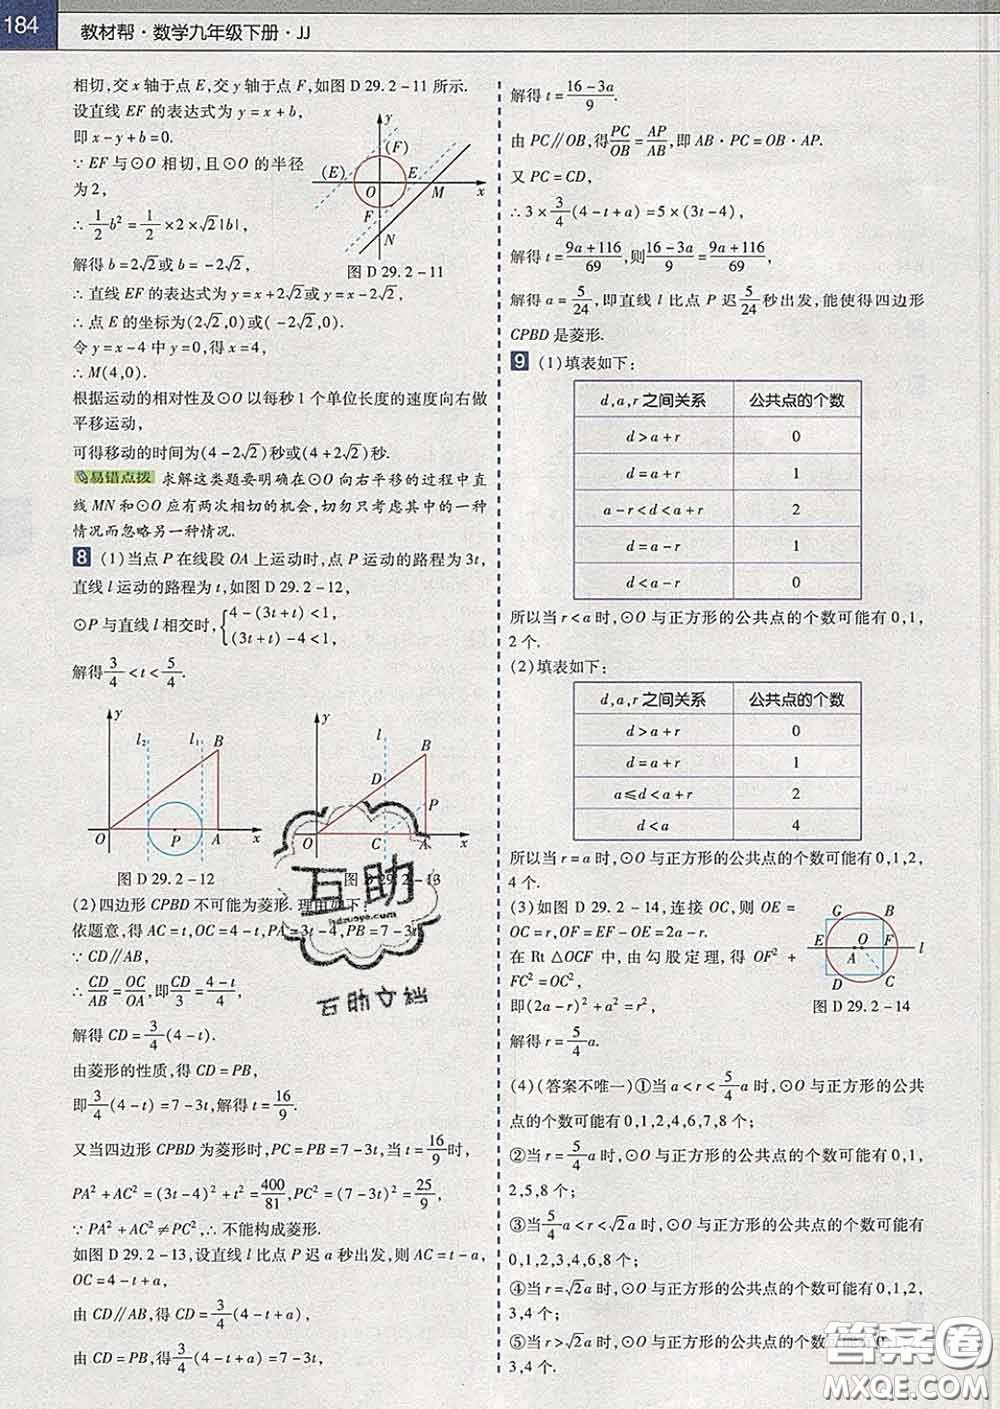 184
教材帮·数学九年级下册·JJ
相切,交x轴于点E,交y轴于点F,如图D 29.2-11所示.
设直线EF的表达式为y=x+b,
即x-y+b=0.
∵EF与⊙O相切,且⊙O的半径
为2,
∴1/2b²=1/2×2×√2|b|,
解得b=2√2或b=-2√2,
∴直线EF的表达式为y=x+2√2或y=x-2√2,
∴点E的坐标为(2√2,0)或(-2√2,0).
令y=x-4中y=0,得x=4,
∴M(4,0).
y
(F)
(E)
E
O
M
x
F
N
图D 29.2-11
根据运动的相对性及⊙O以每秒1个单位长度的速度向右做
平移运动,
可得移动的时间为(4-2√2)秒或(4+2√2)秒.
易错点拨 求解这类题要明确在⊙O向右平移的过程中直
线MN和⊙O应有两次相切的机会,切勿只考虑其中的一种
情况而忽略另一种情况.
8 (1)当点P在线段OA上运动时,点P运动的路程为3t,
直线l运动的路程为t,如图D 29.2-12,
⊙P与直线l相交时,{4-(3t+t)<1,
(3t+t)-4<1,
解得3/4<t<5/4.
y
l₂
l₁
B
O
P
A
x
图D 29.2-12
y
l
B
D
P
O
C
A
x
图D 29.2-13
(2)四边形CPBD不可能为菱形.理由如下:
依题意,得AC=t,OC=4-t,PA=3t-4,PB=7-3t.
∵CD∥AB,
∴CD/AB=OC/OA,即CD/3=(4-t)/4,
解得CD=3/4(4-t).
由菱形的性质,得CD=PB,
即3/4(4-t)=7-3t,解得t=16/9.
又当四边形CPBD为菱形时,PC=PB=7-3t,当t=16/9时,
PA²+AC²=(3t-4)²+t²=400/81,PC²=(7-3t)²=25/9,
∵PA²+AC²≠PC²,∴不能构成菱形.
如图D 29.2-13,设直线l比点P迟a秒出发,则AC=t-a,
OC=4-t+a,
由CD∥AB,得CD=3/4(4-t+a),
由CD=PB,得3/4(4-t+a)=7-3t,
解得t=(16-3a)/9.
由PC∥OB,得PC/OB=AP/AB,即AB·PC=OB·AP.
又PC=CD,
∴3×3/4(4-t+a)=5×(3t-4),
解得t=(9a+116)/69,则(16-3a)/9=(9a+116)/69,
解得a=5/24,即直线l比点P迟5/24秒出发,能使得四边形
CPBD是菱形.
9 (1)填表如下:
d,a,r之间关系 公共点的个数
d>a+r 0
d=a+r 1
a-r<d<a+r 2
d=a-r 1
d<a-r 0
所以当r<a时,⊙O与正方形的公共点的个数可能有0,1,
2个.
(2)填表如下:
d,a,r之间关系 公共点的个数
d>a+r 0
d=a+r 1
a≤d<a+r 2
d<a 4
所以当r=a时,⊙O与正方形的公共点的个数可能有0,1,2,
4个.
(3)如图D 29.2-14,连接OC,则OE=
OC=r,OF=EF-OE=2a-r.
在Rt△OCF中,由勾股定理,得OF²+
FC²=OC²,
即(2a-r)²+a²=r²,
解得r=5/4a.
G
B
E
O
F
l
A
D
C
图D 29.2-14
(4)(答案不唯一)①当a<r<5/4a时,⊙O与正方形的公共
点的个数可能有0,1,2,4,6,7,8个;
②当r=5/4a时,⊙O与正方形的公共点的个数可能有0,1,
2,5,8个;
③当5/4a<r<√2a时,⊙O与正方形的公共点的个数可能有
0,1,2,3,4,6,8个;
④当r=√2a时,⊙O与正方形的公共点的个数可能有0,1,2,
3,4个;
⑤当r>√2a时,⊙O与正方形的公共点的个数可能有0,1,2,
3,4个.
互助
hdzuoye.com
互助文档
答案圈
MXQE.COM